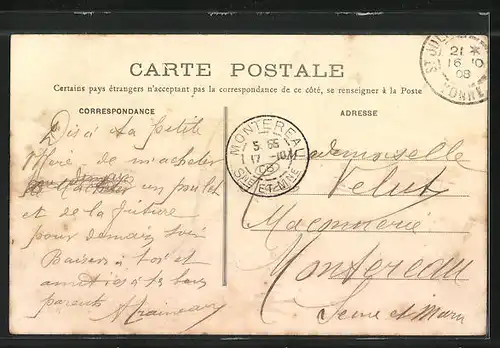 CARTE POSTALE
Certains pays étrangers n'acceptant pas la correspondance de ce côté, se renseigner à la Poste
CORRESPONDANCE
Dis à ta petite
de m'acheter
un poulet
et de la friture
pour demain soir
Baisers à toi et
amitiés à tes bons
parents
ADRESSE
Mademoiselle
Velut
Maçonnerie
Montereau
Seine et Marne
MONTEREAU
5 55
17 -10
08
SEINE-ET-MARNE
ST JULIEN
21 *
16 10
08
YONNE